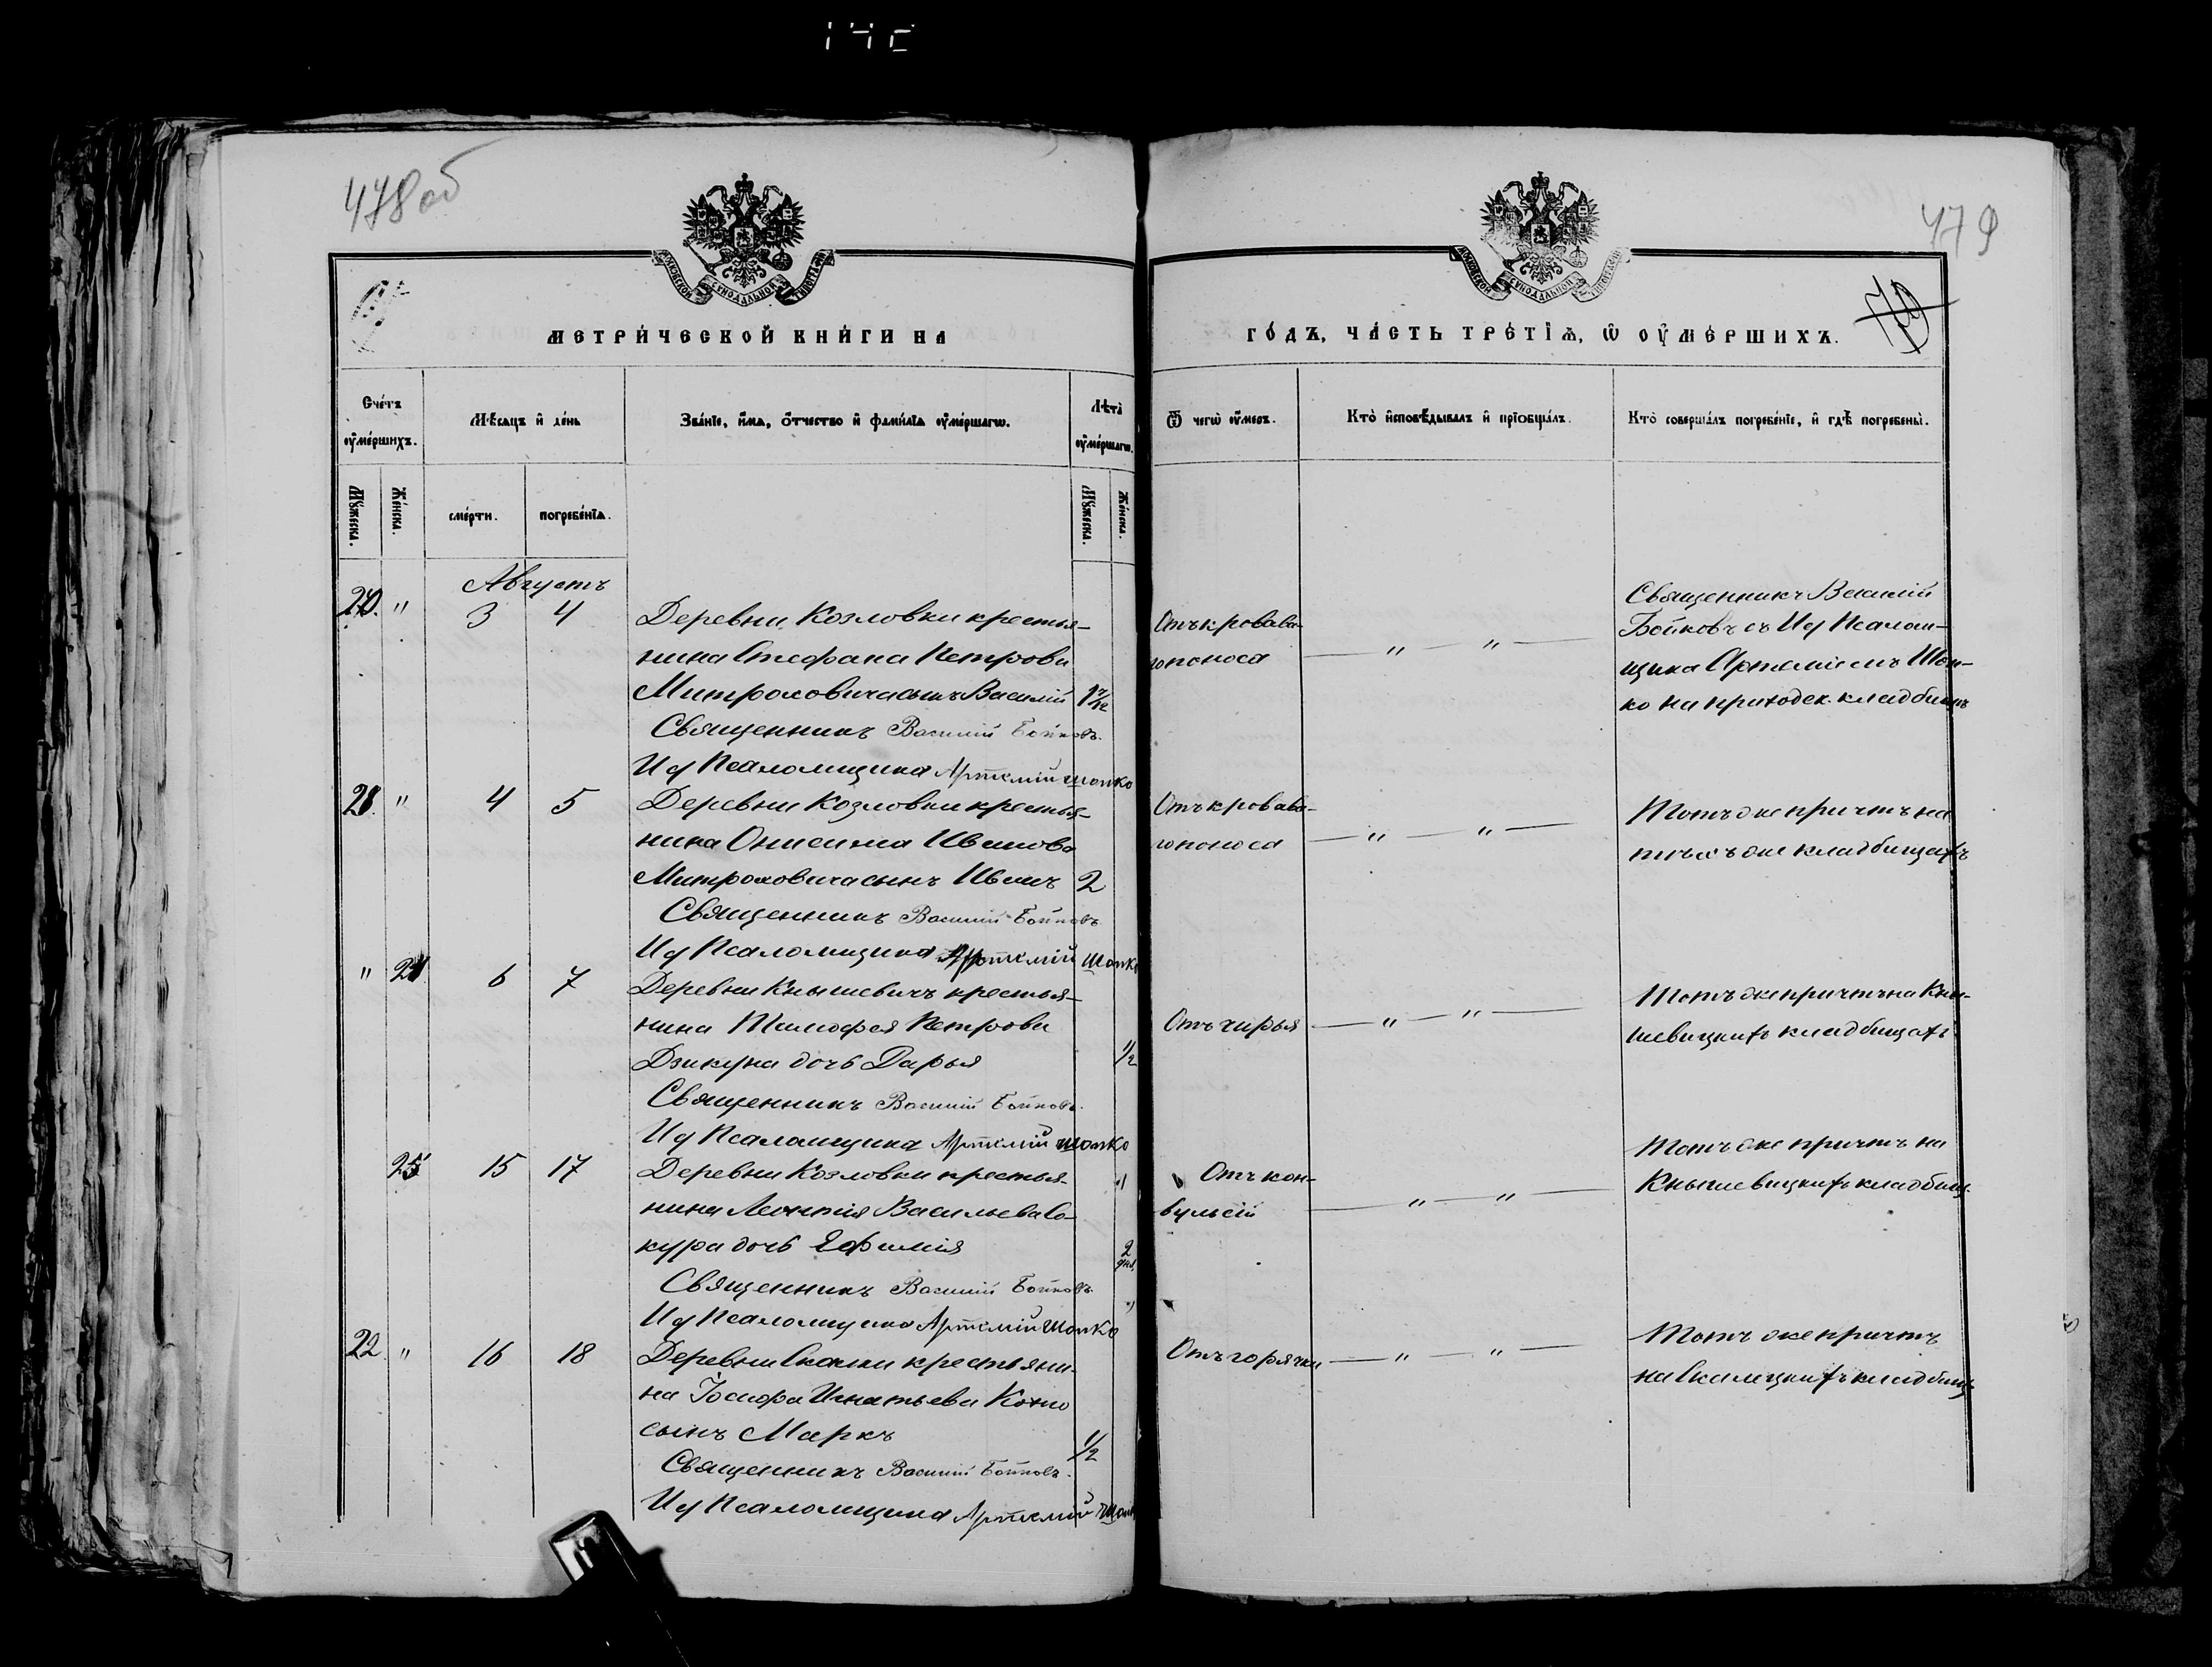 478 об
479
МЕТРИ́ЧЕСКОЙ КНИ́ГИ НА
ГО́ДЪ, ЧА́СТЬ ТРЕ́ТІѦ, Ѡ ОУ҆МЕ́РШИХЪ.
Сче́тъ оу҆ме́ршихъ.
Мѣ́сяцъ и҆ де́нь
Зва́нїе, и҆́мѧ, ѻ҆́тчество и҆ фами́лїѧ оу҆ме́ршагѡ.
Лѣта̀ оу҆ме́ршагѡ.
Ѿ чегѡ̀ оу҆́меръ.
Кто̀ и҆сповѣ́дывалъ и҆ прїѡбща́лъ.
Кто̀ соверша́лъ погребе́нїе, и҆ гдѣ̀ погребены̀.
Мꙋ́жеска.
Же́нска.
сме́рти.
погребе́нїѧ.
Мꙋ́жеска.
Же́нска.
Августъ
20. " 3 4
Деревни Козловки крестья-
нина Стефана Петрова
Митроховича сынъ Василій
Священникъ Василій Бойковъ.
Ид Псаломщика Артемій Шопко
Отъ кроваваго поноса
— " — " —
Священникъ Василій
Бойковъ съ Ид Псалом-
щика Артеміемъ Шоп-
ко на приходск. кладбищѣ
21. " 4 5
Деревни Козловки крестья-
нина Онисима Иванова
Митроховича сынъ Иванъ 2
Священникъ Василій Бойковъ
Ид Псаломщика Артемій Шопко
Отъ кроваваго поноса
— " — " —
Тотъ же причтъ на
тѣхъ же кладбищахъ
" 6 7
Деревни Кнышевичъ крестья-
нина Тимофея Петрова
Дзикуна дочь Дарья 1/2
Священникъ Василій Бойковъ.
Ид Псаломщика Артемій Шопко
Отъ чирья
— " — " —
Тотъ же причтъ на Кны-
шевицкихъ кладбищахъ
25 15 17
Деревни Козловки крестья-
нина Леонтія Васильева Со-
кура дочь Ефимія 2 дня.
Священникъ Василій Бойковъ.
Ид Псаломщика Артемій Шопко
Отъ кон-
вульсій
— " — " —
Тотъ же причтъ на
Кнышевицкихъ кладбищ.
22. " 16 18
Деревни Скалки крестьяни-
на Іосифа Игнатьева Кохно
сынъ Маркъ 1/2
Священникъ Василій Бойковъ.
Ид Псаломщика Артемій Шопко
Отъ горячки
— " — " —
Тотъ же причтъ
на Скалецкихъ кладбищ